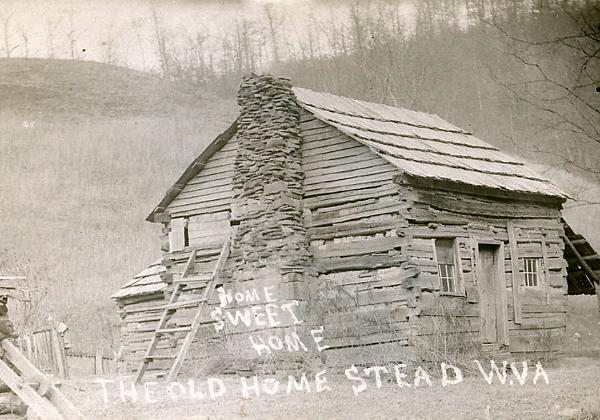 HOME
SWEET
HOME
THE OLD HOME STEAD W.VA